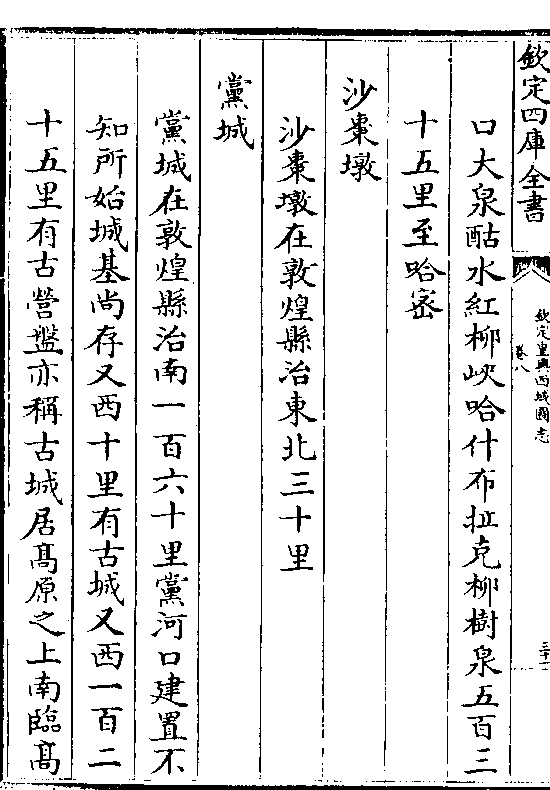 欽定四庫全書
欽定皇輿西域圖志
卷八
口大泉酤水紅柳峽哈什布拉克柳樹泉五百三
十五里至哈密
沙棗墩
沙棗墩在敦煌縣治東北三十里
黨城
黨城在敦煌縣治南一百六十里黨河口建置不
知所始城基尚存又西十里有古城又西一百二
十五里有古營盤亦稱古城居髙原之上南臨髙